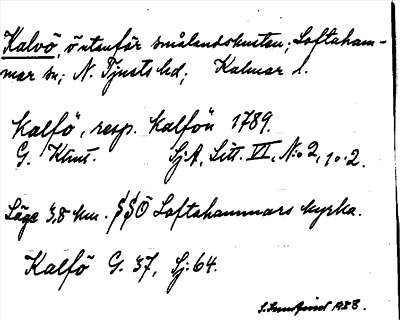 Kalvö, ö utanför smålandskusten; Loftaham-
mar sn; N. Tjusts hd; Kalmar l.
Kalfö, resp. Kalfön 1789.
G. Klint. Sj.A, Litt. VI, N:o 2, 1 o. 2.
Läge 3,8 km. SSÖ Loftahammars kyrka.
Kalfö G. 37, Sj: 64.
1938.